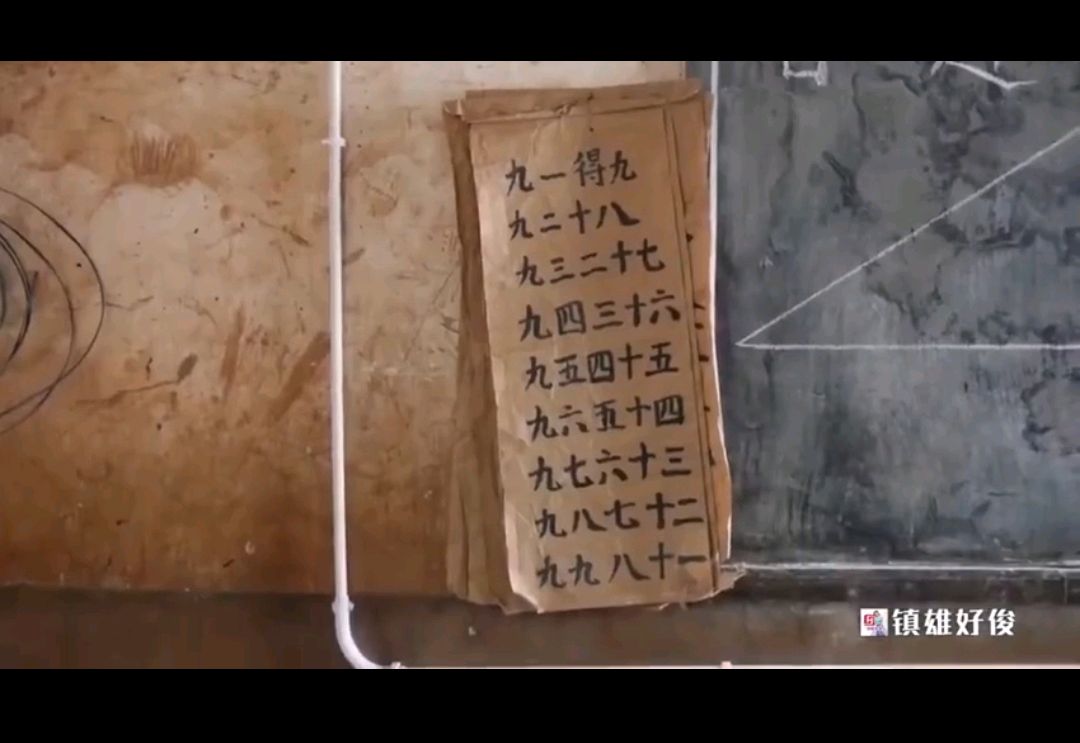 九一得九
九二十八
九三二十七
九四三十六
九五四十五
九六五十四
九七六十三
九八七十二
九九八十一
镇雄好俊